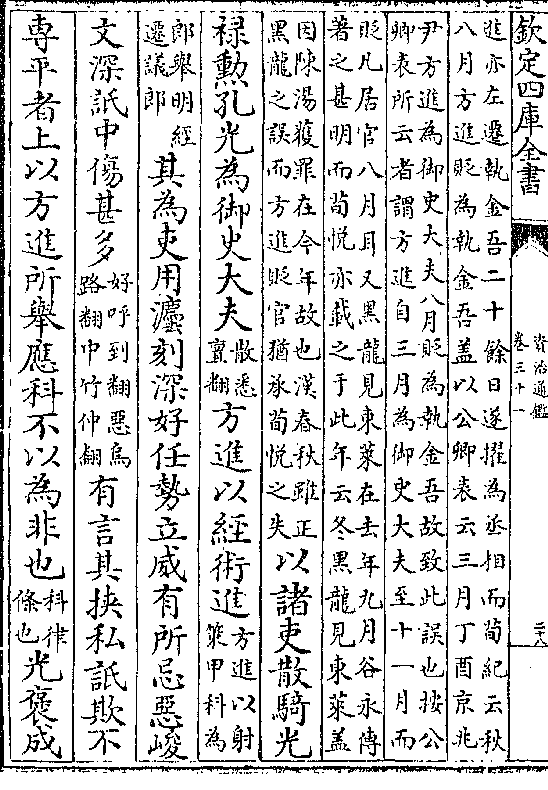 欽定四庫全書
資治通鑑
卷三十一
進亦左遷執金吾二十餘日遂擢為丞相而荀紀云秋
八月方進貶為執金吾蓋以公卿表云三月丁酉京兆
尹方進為御史大夫八月貶為執金吾故致此誤也按公
卿表所云者謂方進自三月為御史大夫至十一月而
貶凡居官八月耳又黑龍見東萊在去年九月谷永傳
著之甚明而荀悅亦載之于此年云冬黑龍見東萊蓋
因陳湯獲罪在今年故也漢春秋雖正
黑龍之誤而方進貶官猶承荀悅之失以諸吏散騎光
祿勲孔光為御史大夫散悉
亶翻方進以經術進方進以射
策甲科為
郎舉明經
遷議郎其為吏用灋刻深好任勢立威有所忌惡峻
文深詆中傷甚多好呼到翻惡烏
路翻中竹仲翻有言其挾私詆欺不
専平者上以方進所舉應科不以為非也科律
條也光褒成